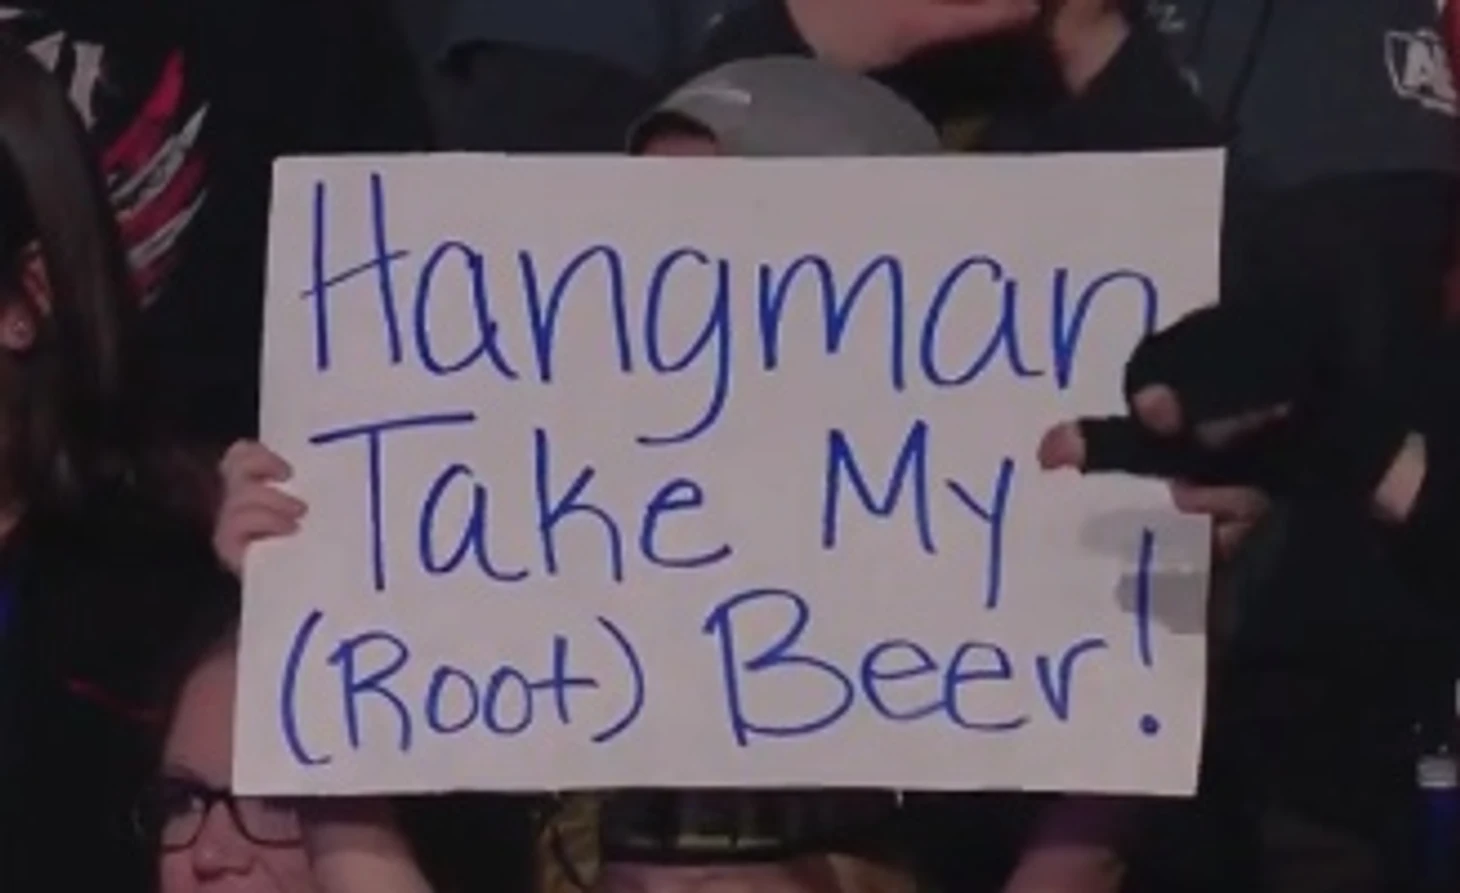 Hangman
Take My
(Root) Beer!